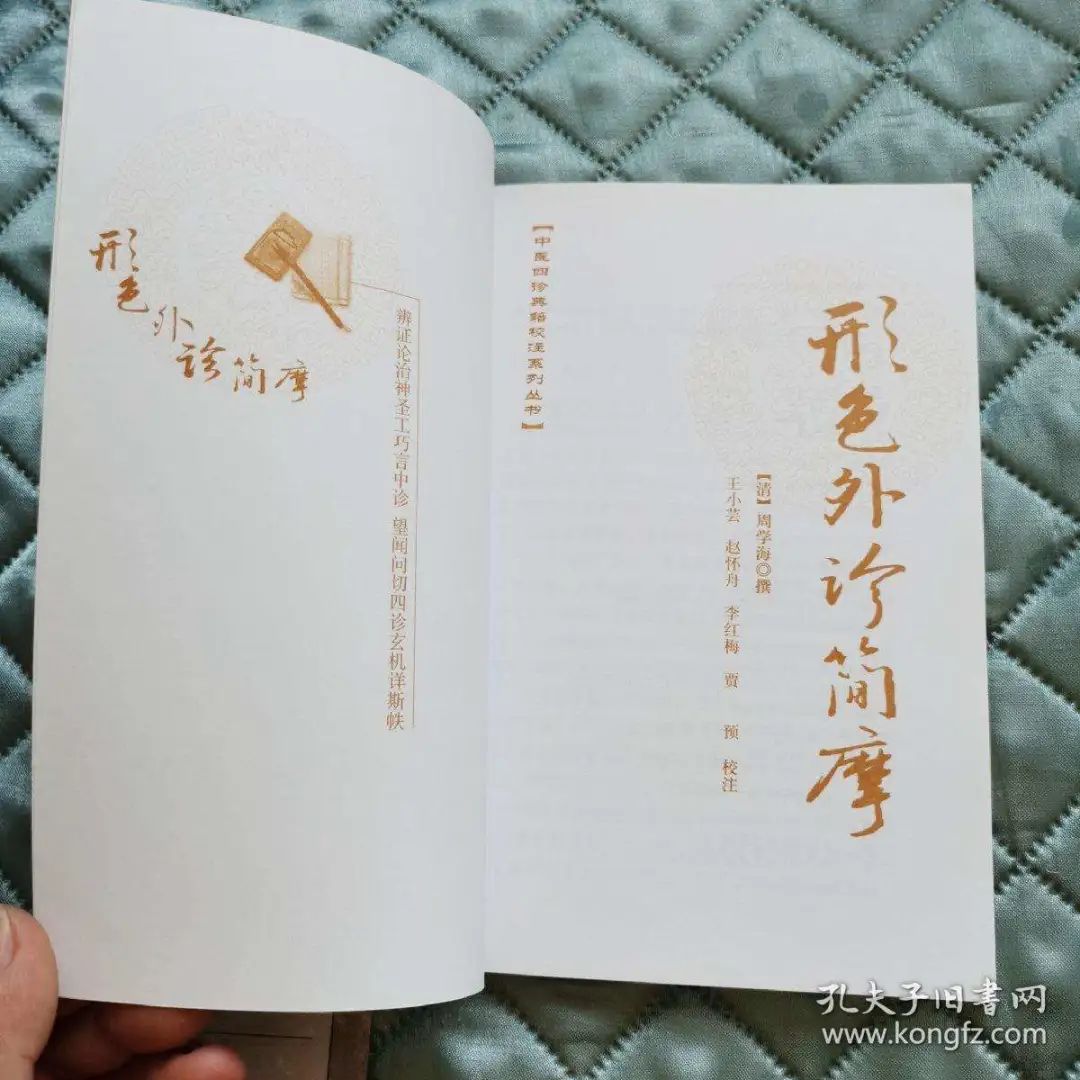 形色外诊简摩
辨证论治神圣工巧言中诊 望闻问切四诊玄机详斯帙
【中医四诊典籍校注系列丛书】
形色外诊简摩
【清】周学海◎撰
王小芸 赵怀舟 李红梅 贾 预 校注
孔夫子旧書网
www.kongfz.com